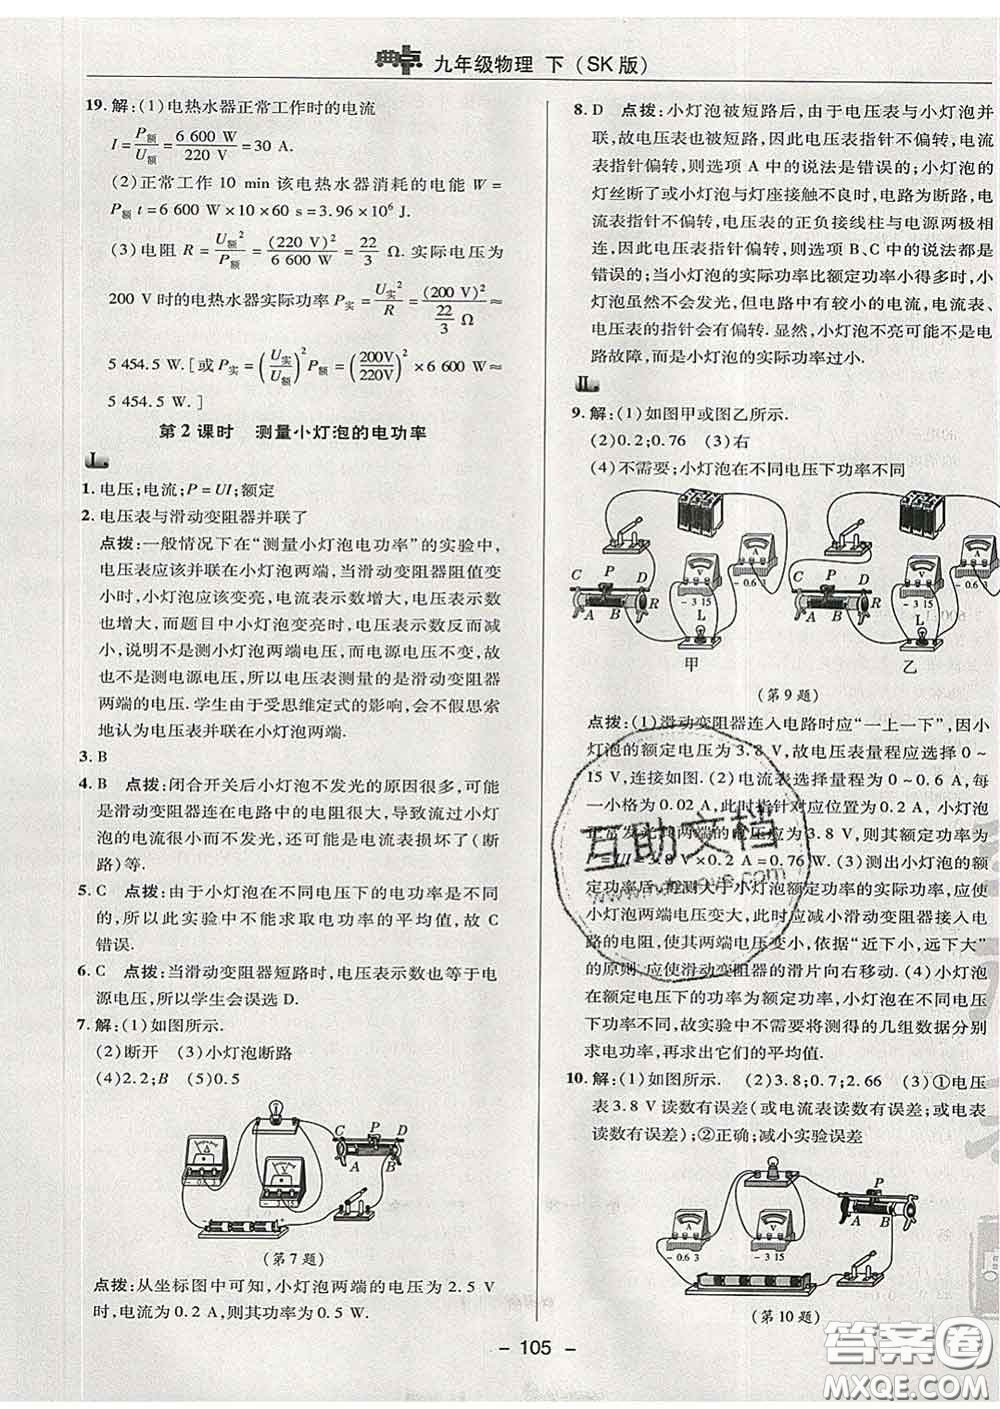 典点 九年级物理 下(SK版)
19.解:(1)电热水器正常工作时的电流
I=P额/U额=6 600 W/220 V=30 A.
(2)正常工作 10 min 该电热水器消耗的电能 W=
P额 t=6 600 W×10×60 s=3.96×10⁶ J.
(3)电阻 R=U额²/P额=(220 V)²/6 600 W=22/3 Ω. 实际电压为
200 V 时的电热水器实际功率 P实=U实²/R=(200 V)²/(22/3 Ω)≈
5 454.5 W.[或 P实=(U实/U额)² P额=(200V/220V)²×6 600 W≈
5 454.5 W.]
第2课时 测量小灯泡的电功率
Ⅰ.
1.电压;电流;P=UI;额定
2.电压表与滑动变阻器并联了
点拨:一般情况下在“测量小灯泡电功率”的实验中,
电压表应该并联在小灯泡两端,当滑动变阻器阻值变
小时,小灯泡应该变亮,电流表示数增大,电压表示数
也增大,而题目中小灯泡变亮时,电压表示数反而减
小,说明不是测小灯泡两端电压,而电源电压不变,故
也不是测电源电压,所以电压表测量的是滑动变阻器
两端的电压.学生由于受思维定式的影响,会不假思索
地认为电压表并联在小灯泡两端.
3.B
4.B 点拨:闭合开关后小灯泡不发光的原因很多,可能
是滑动变阻器连在电路中的电阻很大,导致流过小灯
泡的电流很小而不发光,还可能是电流表损坏了(断
路)等.
5.C 点拨:由于小灯泡在不同电压下的电功率是不同
的,所以此实验中不能求取电功率的平均值,故 C
错误.
6.C 点拨:当滑动变阻器短路时,电压表示数也等于电
源电压,所以学生会误选 D.
7.解:(1)如图所示.
(2)断开 (3)小灯泡断路
(4)2.2;B (5)0.5
A
V
C P D
A B
(第7题)
点拨:从坐标图中可知,小灯泡两端的电压为 2.5 V
时,电流为 0.2 A,则其功率为 0.5 W.
8.D 点拨:小灯泡被短路后,由于电压表与小灯泡并
联,故电压表也被短路,因此电压表指针不偏转,电流
表指针偏转,则选项 A 中的说法是错误的;小灯泡的
灯丝断了或小灯泡与灯座接触不良时,电路为断路,电
流表指针不偏转,电压表的正负接线柱与电源两极相
连,因此电压表指针偏转,选项 B、C 中的说法都是
错误的;当小灯泡的实际功率比额定功率小得多时,小
灯泡虽然不会发光,但电路中有较小的电流,电流表、
电压表的指针会有偏转.显然,小灯泡不亮可能不是电
路故障,而是小灯泡的实际功率过小.
Ⅱ.
9.解:(1)如图甲或图乙所示.
(2)0.2;0.76 (3)右
(4)不需要;小灯泡在不同电压下功率不同
C P D
A B R
V
- 3 15
L
A
- 0.6 3
甲
C P D
A B R
V
- 3 15
L
A
- 0.6 3
乙
(第9题)
点拨:(1)滑动变阻器连入电路时应“一上一下”,因小
灯泡的额定电压为 3.8 V,故电压表量程应选择 0~
15 V,连接如图.(2)电流表选择量程为 0~0.6 A,每
一小格为 0.02 A,此时指针对应位置为 0.2 A,小灯泡
正常发光其两端的电压应为 3.8 V,则其额定功率为
P=UI=3.8 V×0.2 A=0.76 W.(3)测出小灯泡的额
定功率后,想测大于小灯泡额定功率的实际功率,应使
小灯泡两端电压变大,此时应减小滑动变阻器接入电
路的电阻,使其两端电压变小,依据“近下小,远下大”
的原则,应使滑动变阻器的滑片向右移动.(4)小灯泡
在额定电压下的功率为额定功率,小灯泡在不同电压
下功率不同,故实验中不需要将测得的几组数据分别
求电功率,再求出它们的平均值.
10.解:(1)如图所示. (2)3.8;0.7;2.66 (3)①电压
表 3.8 V 读数有误差(或电流表读数有误差,或电表
读数有误差);②正确;减小实验误差
A
- 0.6 3
V
- 3 15
P
A B
(第10题)
互助文档
- 105 -
答案圈
MXQE.COM